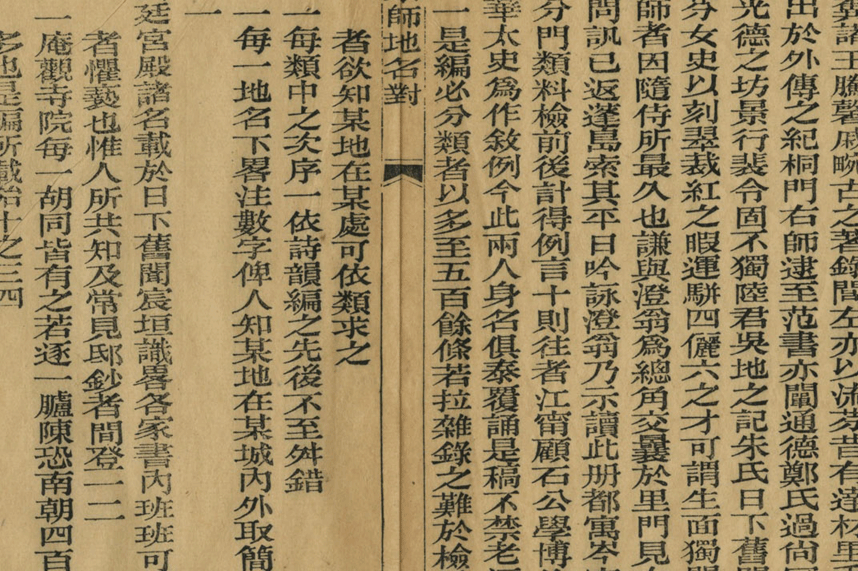 冀諸王騰馨戚畹古之著錄間左亦以流芬昔有達材里
出於外傳之紀桐門右師逮至范書亦闡通德鄭氏過尙
光德之坊景行裴令固不獨陸君吳地之記朱氏日下舊聞
分女史以刻翠裁紅之暇運駢四儷六之才可謂生面獨開
師者因隨侍所最久也謙與澄翁爲總角交曩於里門見
問訊已返蓬島索其平日吟詠澄翁乃示讀此册都寓岑
分門類料檢前後計得例言十則往者江甯顧石公學博
華太史爲作敘例今此兩人身名俱泰覆誦是稿不禁老
一是編必分類者以多至五百餘條若拉雜錄之難於檢
師地名對
者欲知某地在某處可依類求之
一每類中之次序一依詩韻編之先後不至舛錯
一每一地名下畧注數字俾人知某地在某城內外取簡
一
廷宮殿諸名載於日下舊聞宸垣識畧各家書內班班可
者懼褻也惟人所共知及常見邸鈔者間登一二
一庵觀寺院每一胡同皆有之若逐一臚陳恐南朝四百
多也是編所載殆十之三四